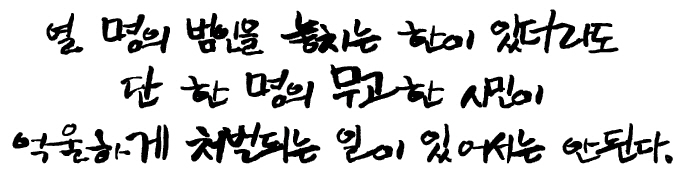 열 명의 범인을 놓치는 한이 있더라도
단 한 명의 무고한 시민이
억울하게 처벌되는 일이 있어서는 안된다.